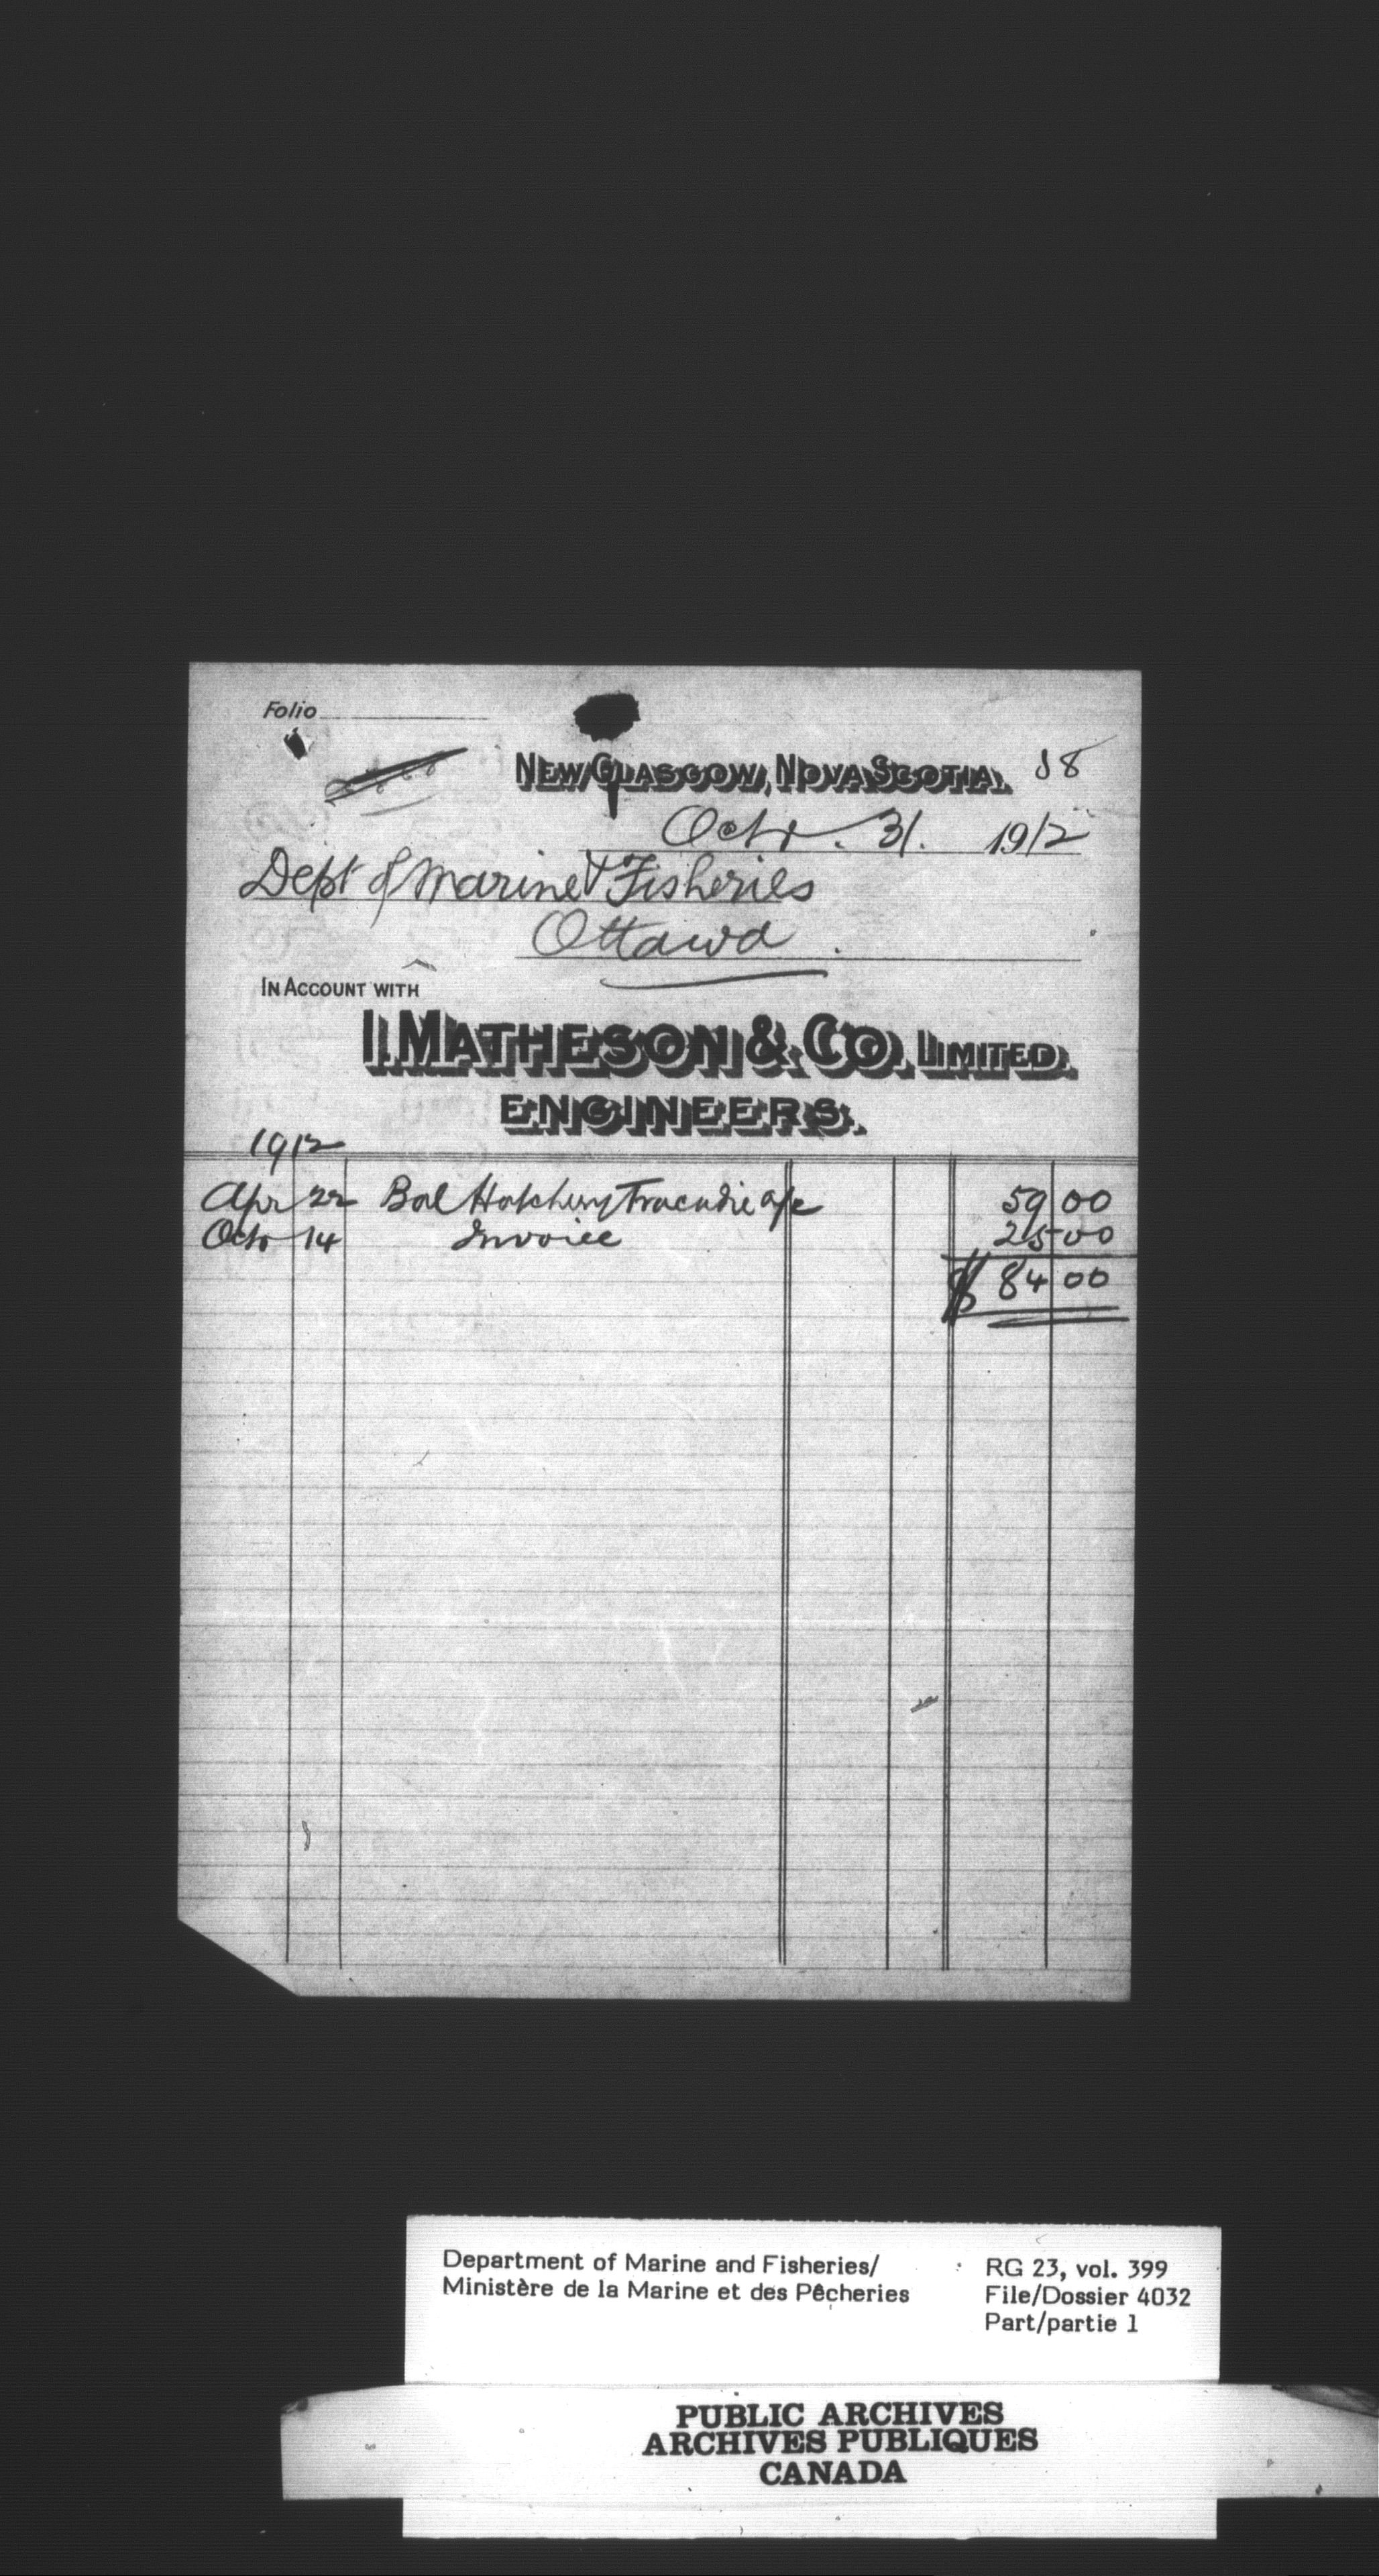 Folio
NEW GLASGOW, NOVA SCOTIA, 38
Octr. 31. 1912
Dept of Marine & Fisheries
Ottawa.
IN ACCOUNT WITH
I. MATHESON & CO. LIMITED.
ENGINEERS.
1912
Apr 22 Bal Hatchery Tracadie a/c 59 00
Octr 14 Invoice 25 00
$ 84 00
Department of Marine and Fisheries/ RG 23, vol. 399
Ministère de la Marine et des Pêcheries File/Dossier 4032
Part/partie 1
PUBLIC ARCHIVES
ARCHIVES PUBLIQUES
CANADA